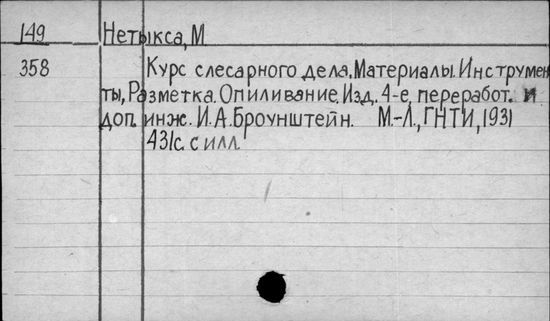 149 Нетыкса, М
358 Курс слесарного дела. Материалы. Инструмен
ты, Разметка. Опиливание. Изд. 4-е, переработ. и
доп. инж. И.А. Броунштейн. М.-Л., ГНТИ, 1931
431с. с илл.